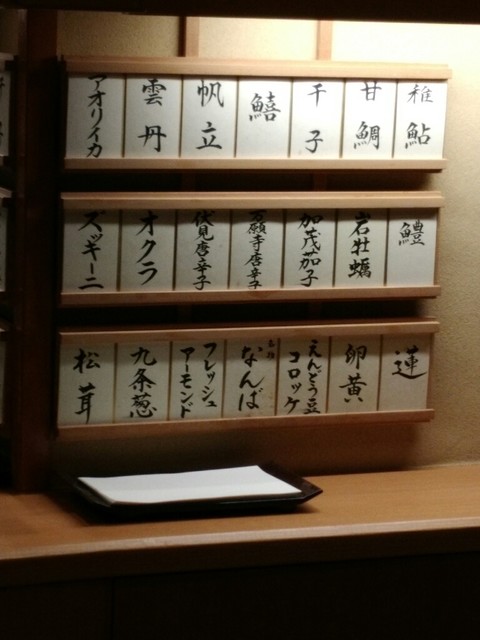 稚鮎
甘鯛
干子
鱚
帆立
雲丹
アオリイカ
鱧
岩牡蠣
加茂茄子
万願寺唐辛子
伏見唐辛子
オクラ
ズッキーニ
蓮
卵黄
えんどう豆
コロッケ
なんば
フレッシュ
アーモンド
九条葱
松茸